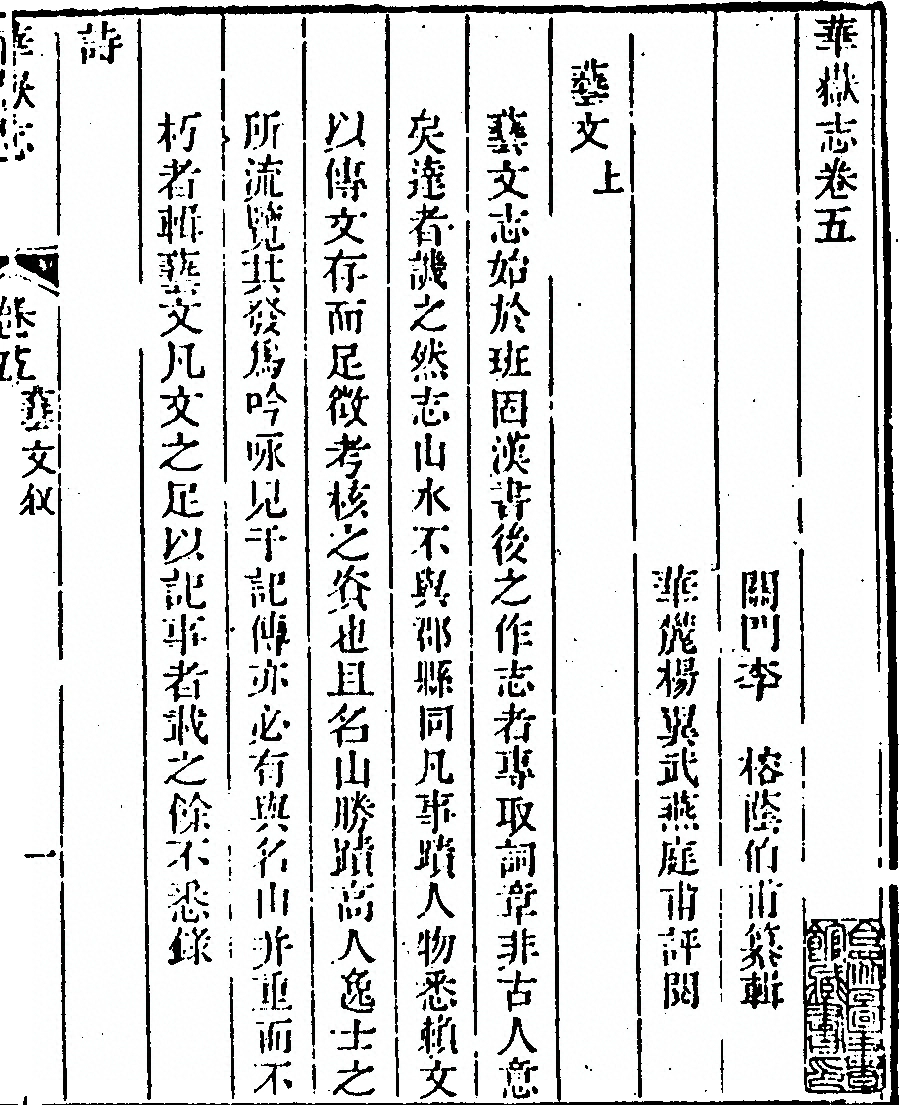 華嶽志卷五
關門李　榕蔭伯甫纂輯
華麓楊翼武燕庭甫評閱
藝文上
藝文志始於班固漢書後之作志者專取詞章非古人意
矣達者譏之然志山水不與郡縣同凡事蹟人物悉賴文
以傳文存而足徵考核之資也且名山勝蹟高人逸士之
所流覽其發爲吟咏見于記傳亦必有與名山并重而不
朽者輯藝文凡文之足以記事者載之餘不悉錄
詩
華嶽志
卷五
藝文敘
一